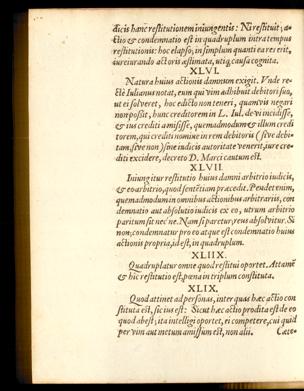 dicis hanc restitutionem iniungentis: Ni restituit; a-
ctio & condemnatio est in quadruplum intra tempus
restitutionis: hoc elapso, in simplum quanti ea res erit,
iureiurando actoris æstimata, utiq; causa cognita.
XLVI.
Natura huius actionis damnum exigit. Vnde re-
ctè Iulianus notat, eum qui vim adhibuit debitori suo,
ut ei solveret, hoc edicto non teneri, quamvis negari
non possit, hunc creditorem in L. Iul. de vi incidisse,
& ius crediti amisisse, quemadmodum & illum credi
torem, qui crediti nomine in rem debitoris (sive debi-
tam, sive non) sine iudicis autoritate venerit, iure cre-
diti excidere, decreto D. Marci cautum est.
XLVII.
Iniungitur restitutio huius damni arbitrio iudicis,
& eo arbitrio, quod sententiam præcedit. Pendet enim,
quemadmodum in omnibus actionibus arbitrariis, con
demnatio aut absolutio iudicis ex eo, utrum arbitrio
paritum sit nec ne. Nam si paretur, reus absolvitur. Si
non; condemnatur pro eo atque est condemnatio huius
actionis propria, id est, in quadruplum.
XLIIX.
Quadruplatur omne quod restitui oportet. Attamẽ
& hic restitutio est, pœna in triplum constituta.
XLIX.
Quod attinet ad personas, inter quas hæc actio con
stituta est, sic ius est: Sicut hæc actio prodita est de eo
quod abest; ita intelligi oportet, ei competere, cui quid
per vim aut metum amissum est, non alii.
Cæte-